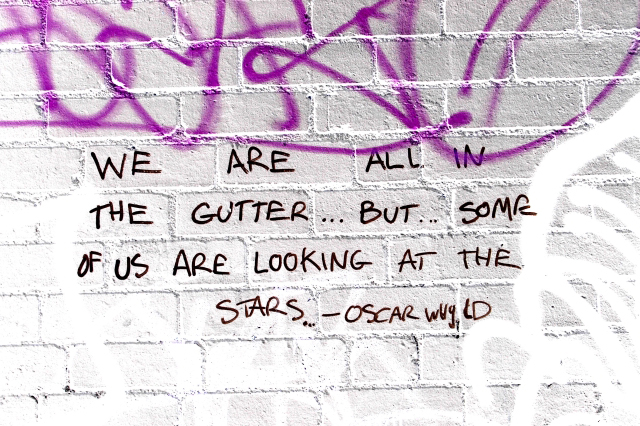 WE ARE ALL IN
THE GUTTER... BUT... SOME
OF US ARE LOOKING AT THE
STARS... - OSCAR